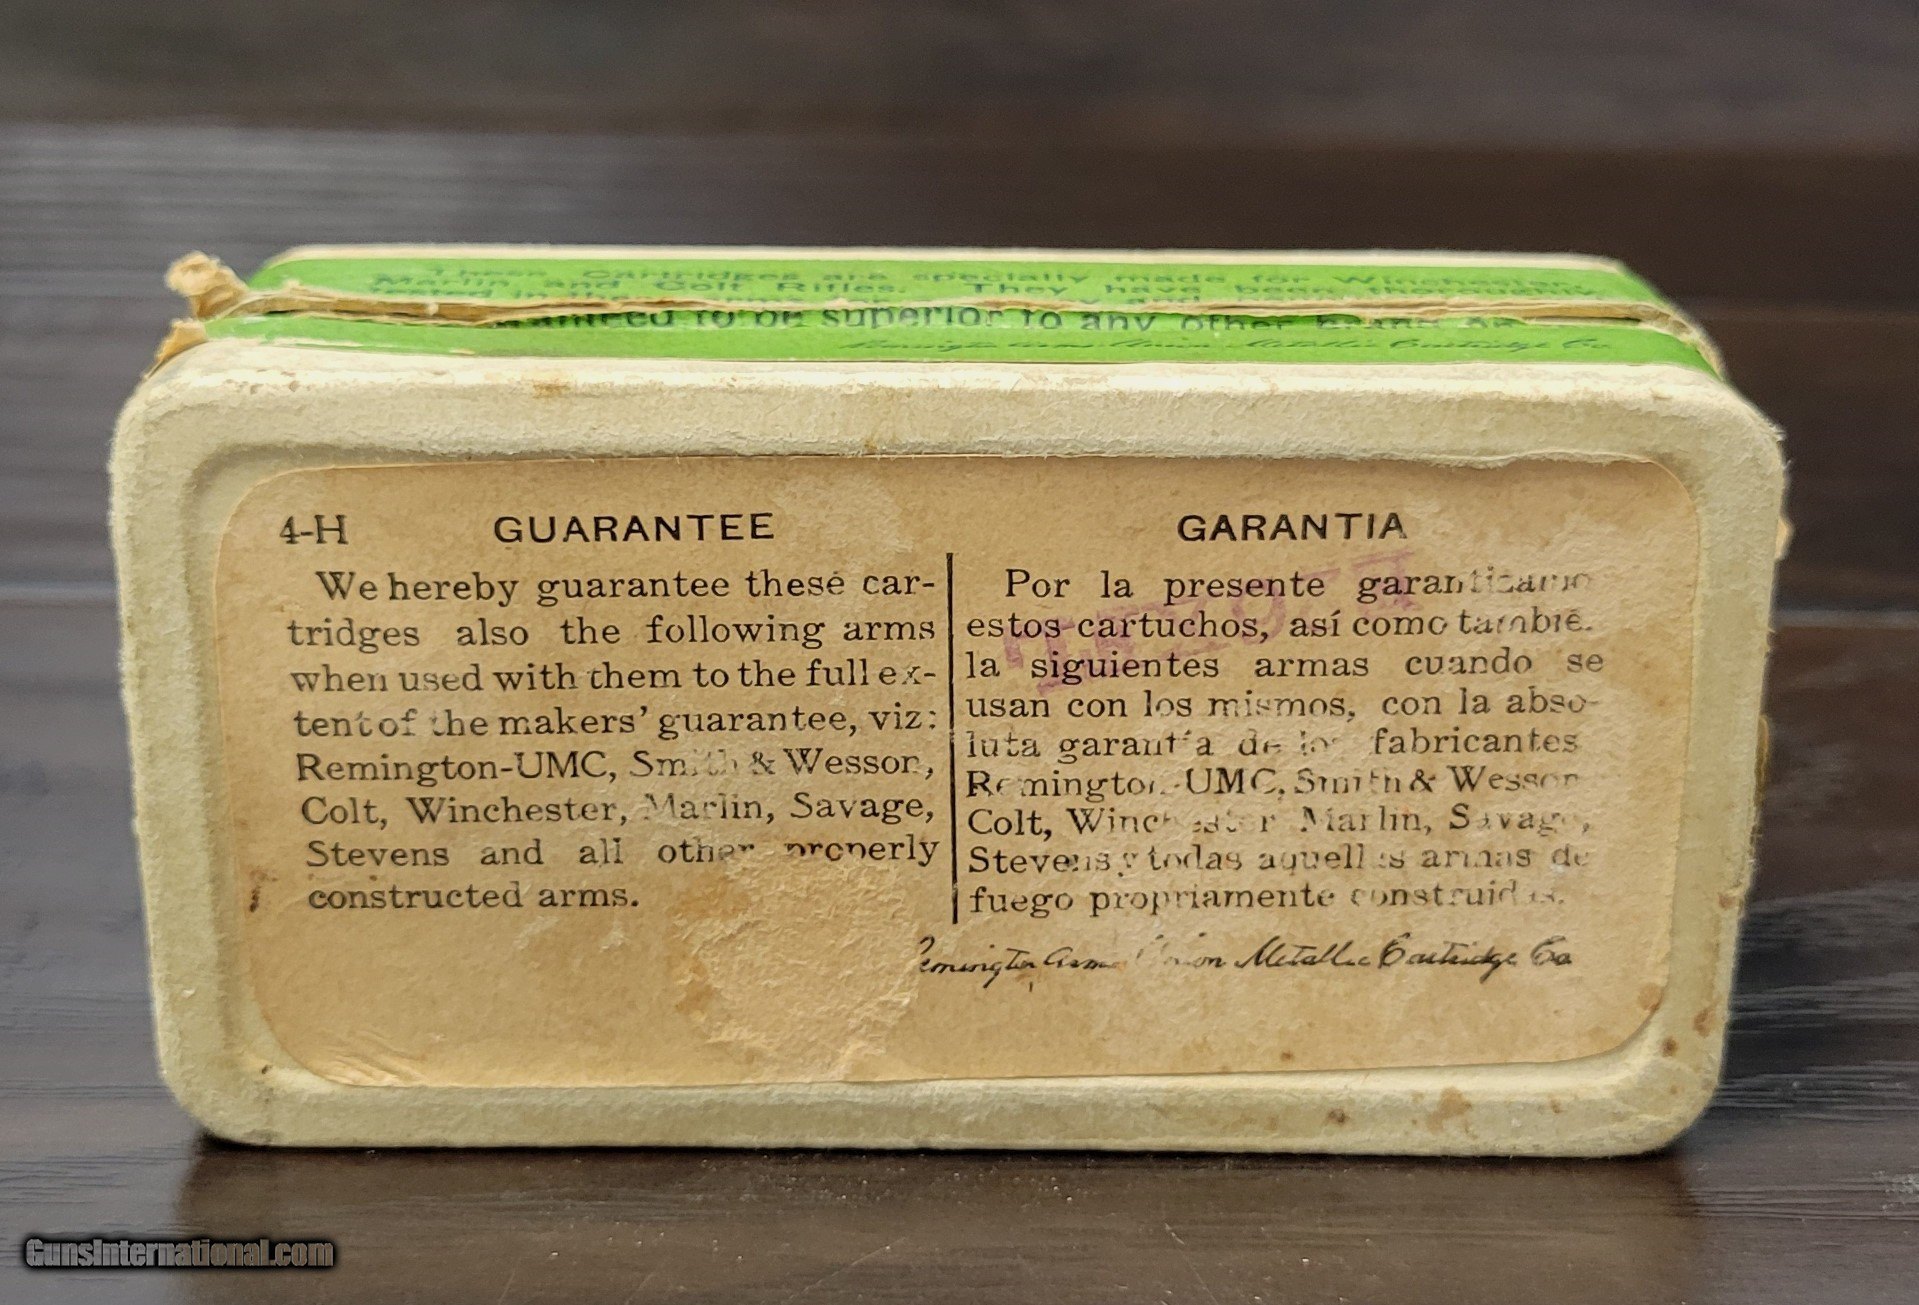 These Cartridges are specially made for Winchester,
Marlin and Colt Rifles. They have been thoroughly
to be superior to any other brand
Remington Arms Union Metallic Cartridge Co.
4-H GUARANTEE
We hereby guarantee these car-
tridges also the following arms
when used with them to the full ex-
tent of the makers' guarantee, viz:
Remington-UMC, Smith & Wesson,
Colt, Winchester, Marlin, Savage,
Stevens and all other properly
constructed arms.
GARANTIA
Por la presente garantizamo
estos cartuchos, así como tambié.
la siguientes armas cuando se
usan con los mismos, con la abso-
luta garantía de los fabricantes
Remington-UMC, Smith & Wesson
Colt, Winchester Marlin, Savage,
Stevens y todas aquellas armas de
fuego propriamente construidas.
Remington Arms Union Metallic Cartridge Co
GunsInternational.com